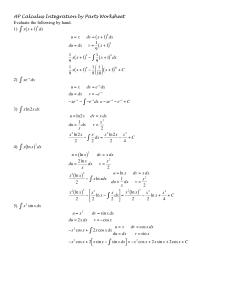 AP Calculus Integration by Parts Worksheet
Evaluate the following by hand.
1) ∫ x(x+1)⁸ dx
u = x dv = (x+1)⁸ dx
du = dx v = 1/9 (x+1)⁹
1/9 x(x+1)⁹ − ∫ 1/9 (x+1)⁹ dx
1/9 x(x+1)⁹ − 1/9 (1/10)(x+1)¹⁰ + C
2) ∫ xe⁻ˣ dx
u = x dv = e⁻ˣ dx
du = dx v = −e⁻ˣ
−xe⁻ˣ − ∫ −e⁻ˣ dx = −xe⁻ˣ − e⁻ˣ + C
3) ∫ x ln 2x dx
u = ln 2x dv = x dx
du = 1/x dx v = x²/2
x² ln 2x/2 − ∫ x/2 dx = x² ln 2x/2 − x²/4
4) ∫ x(ln x)² dx
u = (ln x)² dv = x dx
du = 2 ln x/x dx v = x²/2
x²(ln x)²/2 − ∫ x ln x dx u = ln x dv = x dx
du = 1/x dx v = x²/2
x²(ln x)²/2 − [x²/2 ln x − ∫ x/2 dx] = x²(ln x)²/2 − x²/2 ln x + x²/4 + C
5) ∫ x² sin x dx
u = x² dv = sin x dx
du = 2x dx v = −cos x
−x² cos x + ∫ 2x cos x dx u = x dv = cos x dx
du = dx v = sin x
−x² cos x + 2[x sin x − ∫ sin x dx] = −x² cos x + 2x sin x + 2 cos x + C